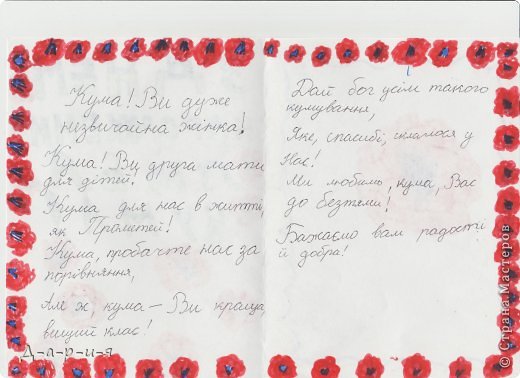 Кума! Ви дуже
незвичайна жінка!
Кума! Ви друга мати
для дітей!
Кума для нас в житті,
як Прометей!
Кума, пробачте нас за
порівняння,
Але ж, кума – Ви краща,
вищий клас!
Д-а-р-и-я
Дай бог усім такого
кумування,
Яке, спасибі, склалося у
Нас!
Ми любимо, кума, Вас
до безтями!
Бажаємо вам радості
й добра!
© Страна Мастеров